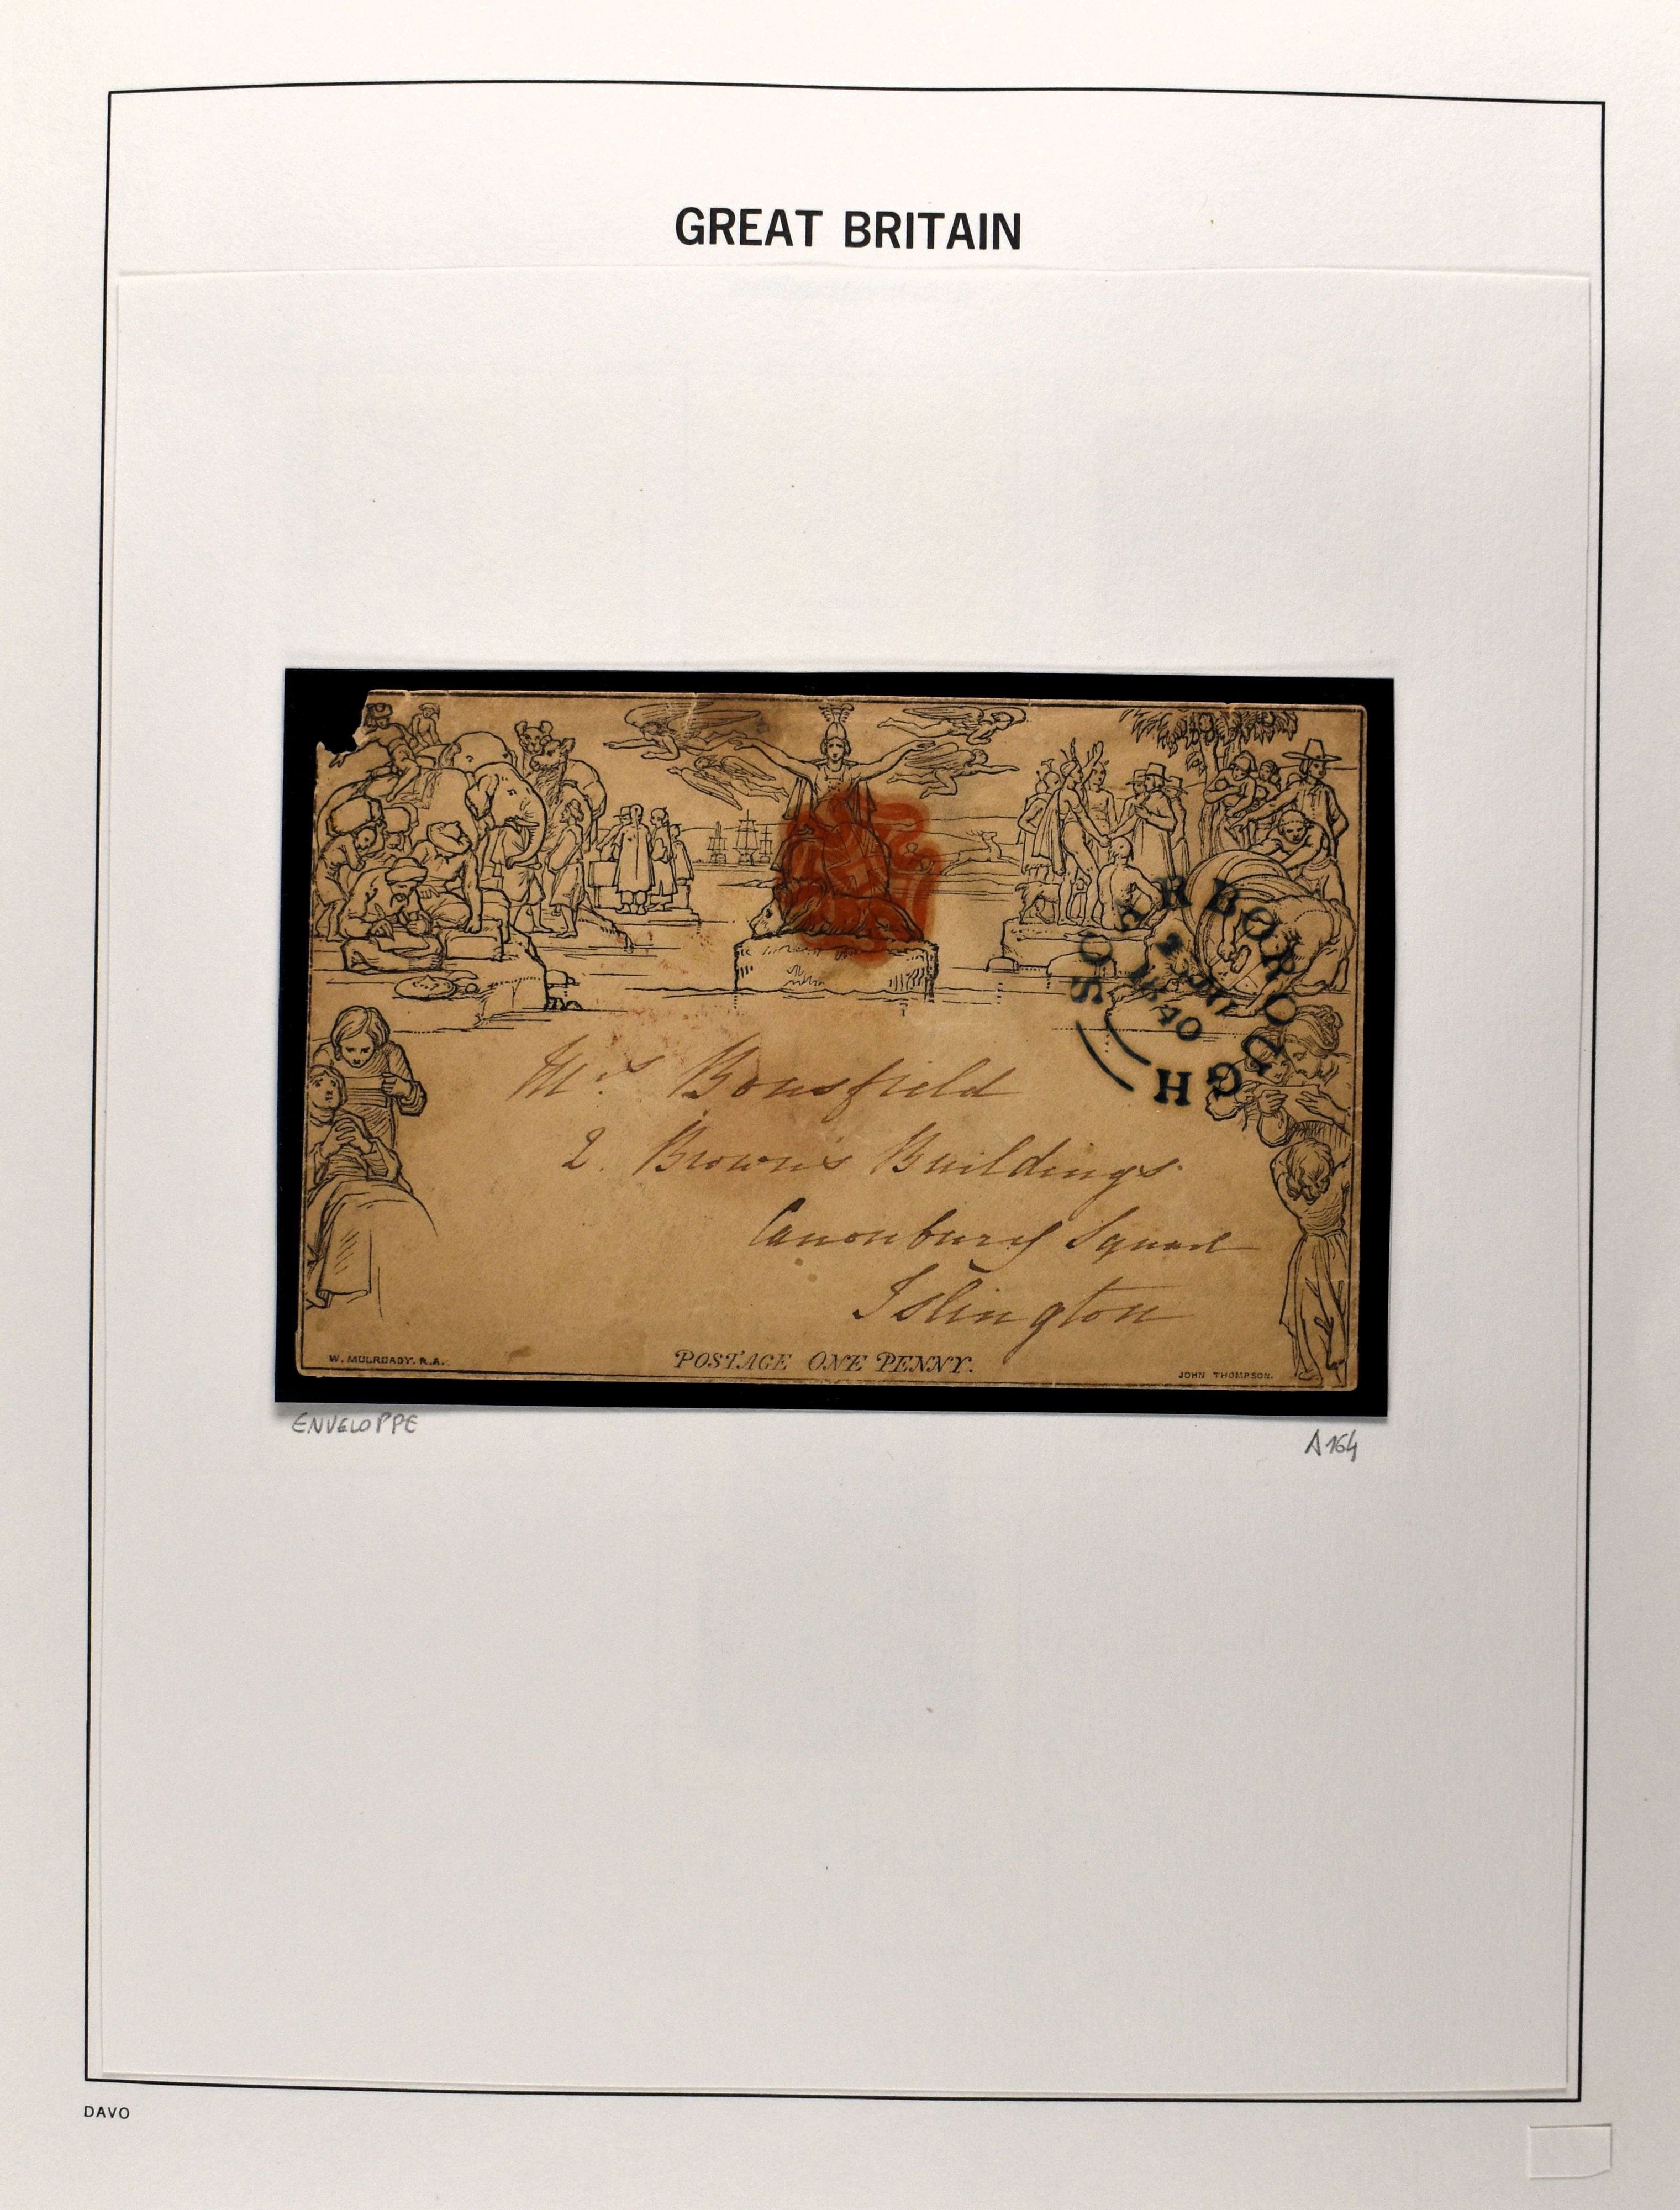 GREAT BRITAIN
SCARBOROUGH
1840
Mrs Bousfield
2. Brown's Buildings
Canonbury Square
Islington
W. MULREADY. R.A.
POSTAGE ONE PENNY.
JOHN THOMPSON.
ENVELOPPE
A164
DAVO